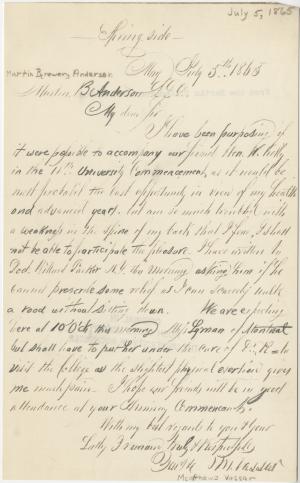 July 5, 1865
Spring side
July 5th 1865
Martin Brewer Anderson
Martin B Anderson
My dear Sir
I have been purposing if
it were possible to accompany our friend Hon. W. Kelly
in the 11th University Commencement, as it would be
most probable the last opportunity in view of my health
and advanced years. but am so much troubled with
a weakness in the spine of my back that I fear I shall
not be able to participate the pleasure. I have written to
Willard Parker N.Y. this morning asking him if he
cannot prescribe some relief as I can scarcely walk
a rood without sitting down. We are expecting
here at 10 O'Ck this morning Miss Lyman of Montreal
but shall have to put her under the care of to
visit the College as the slightest physical exertion gives
me much pain. I hope our friends will be in good
attendance at your Coming Commencement.
With my best regards to you & your
Lady I remain Truly & Respectfully
Yours &c M. Vassar
Matthew Vassar